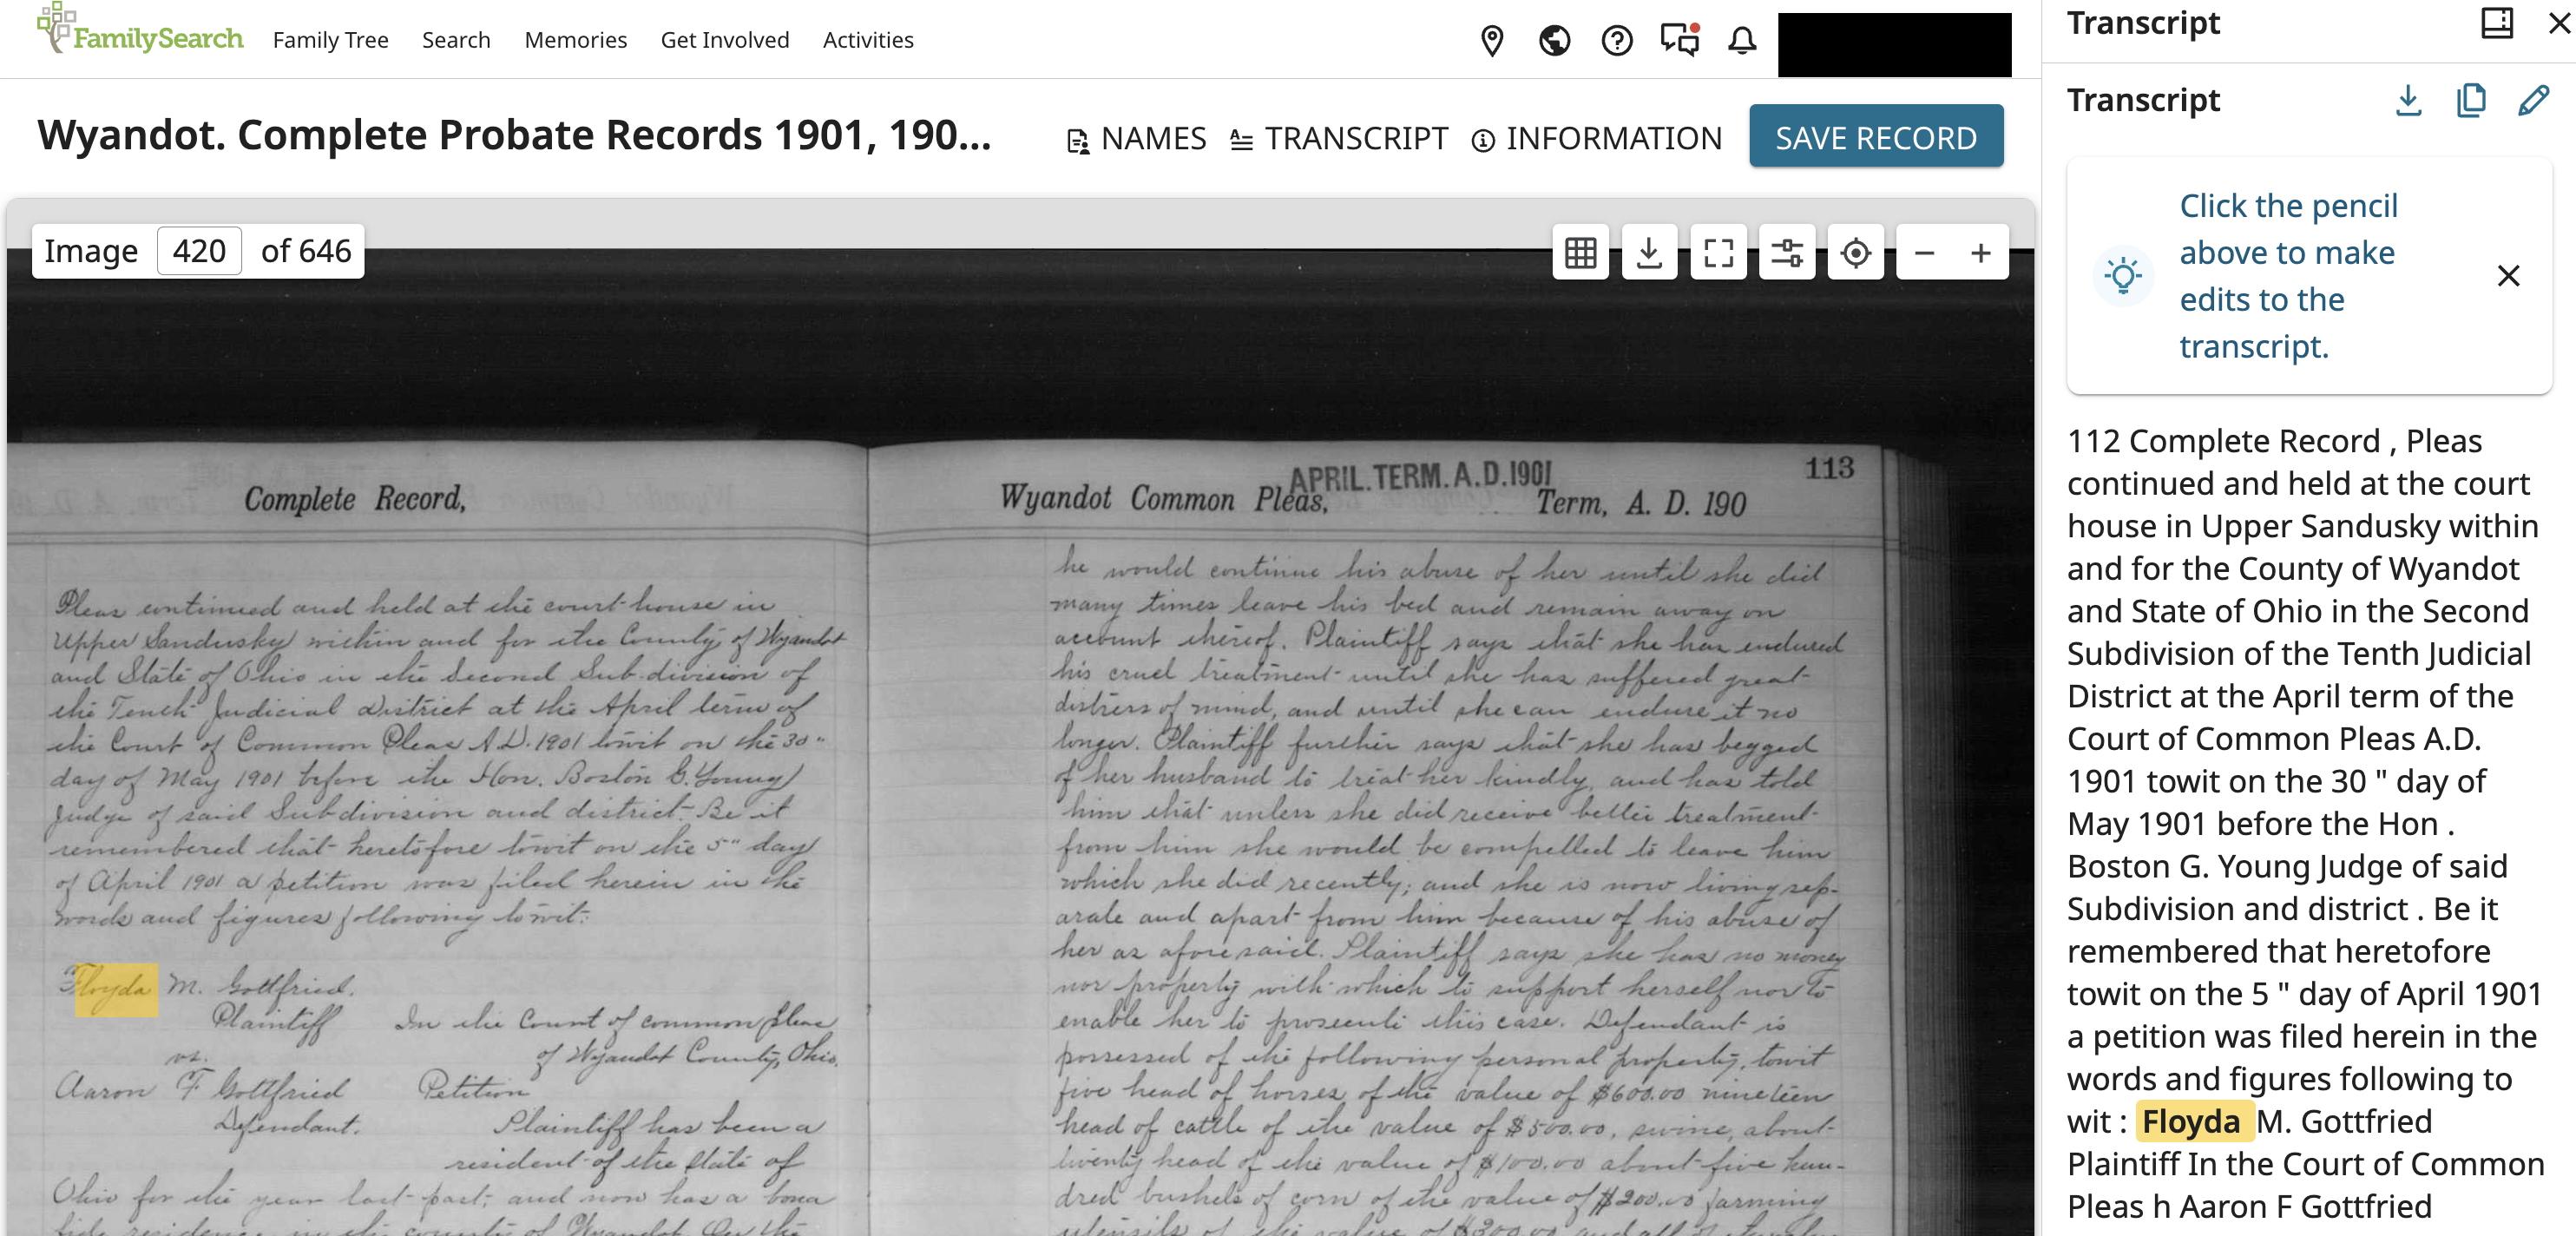 FamilySearch
Family Tree
Search
Memories
Get Involved
Activities
Wyandot. Complete Probate Records 1901, 190...
NAMES
TRANSCRIPT
INFORMATION
SAVE RECORD
Image 420 of 646
Complete Record,
Pleas continued and held at the court-house in
Upper Sandusky within and for the County of Wyandot
and State of Ohio in the Second Sub-division of
the Tenth Judicial District at the April term of
the Court of Common Pleas A.D. 1901 towit on the 30"
day of May 1901 before the Hon. Boston G. Young
Judge of said Subdivision and district. Be it
remembered that heretofore towit on the 5" day
of April 1901 a petition was filed herein in the
words and figures following towit:
Floyda M. Gottfried.
Plaintiff
In the Court of common pleas
vs.
of Wyandot County, Ohio.
Aaron F Gottfried
Petition
Defendant.
Plaintiff has been a
resident of the State of
Ohio for the year last past; and now has a bona
fide residence in the county of Wyandot. On the
APRIL. TERM. A.D. 1901
113
Wyandot Common Pleas,
Term, A. D. 190
he would continue his abuse of her until she did
many times leave his bed and remain away on
account thereof. Plaintiff says that she has endured
his cruel treatment until she has suffered great
distress of mind, and until she can endure it no
longer. Plaintiff further says that she has begged
of her husband to treat her kindly, and has told
him that unless she did receive better treatment
from him she would be compelled to leave him
which she did recently; and she is now living sep-
arate and apart from him because of his abuse of
her as aforesaid. Plaintiff says she has no money
nor property with which to support herself nor to
enable her to prosecute this case. Defendant is
possessed of the following personal property, towit
five head of horses of the value of $600.00 nineteen
head of cattle of the value of $500.00, swine, about
twenty head of the value of $100.00 about five hun-
dred bushels of corn of the value of $200.00 farming
utensils of the value of $300.00 and all of
Transcript
Transcript
Click the pencil
above to make
edits to the
transcript.
112 Complete Record , Pleas
continued and held at the court
house in Upper Sandusky within
and for the County of Wyandot
and State of Ohio in the Second
Subdivision of the Tenth Judicial
District at the April term of the
Court of Common Pleas A.D.
1901 towit on the 30 " day of
May 1901 before the Hon .
Boston G. Young Judge of said
Subdivision and district . Be it
remembered that heretofore
towit on the 5 " day of April 1901
a petition was filed herein in the
words and figures following to
wit : Floyda M. Gottfried
Plaintiff In the Court of Common
Pleas h Aaron F Gottfried